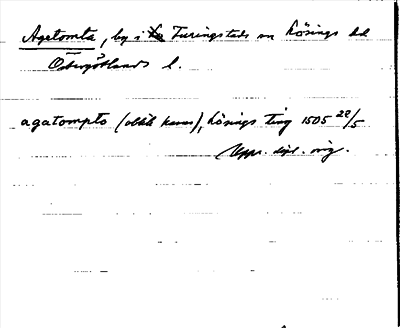 Agetomta, by i Furingstads sn Lösings hd
Östergötlands l.
agatompto (obl. kasus), Lösings ting 1505 22/5
Uppr. dipl. orig.